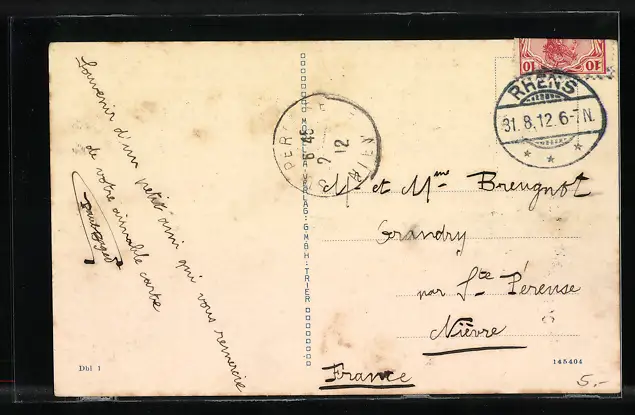 Souvenir d'un petit ami qui vous remercie
de votre aimable carte
MOSELLA VERLAG: G·M·B·H·TRIER
10 10
RHENS
31.8.12.6-7N.
6 45
2
12
M. et Mme Breugnot
Grandry
par Ste Péreuse
Nièvre
France
Dbl 1
145404
5.-